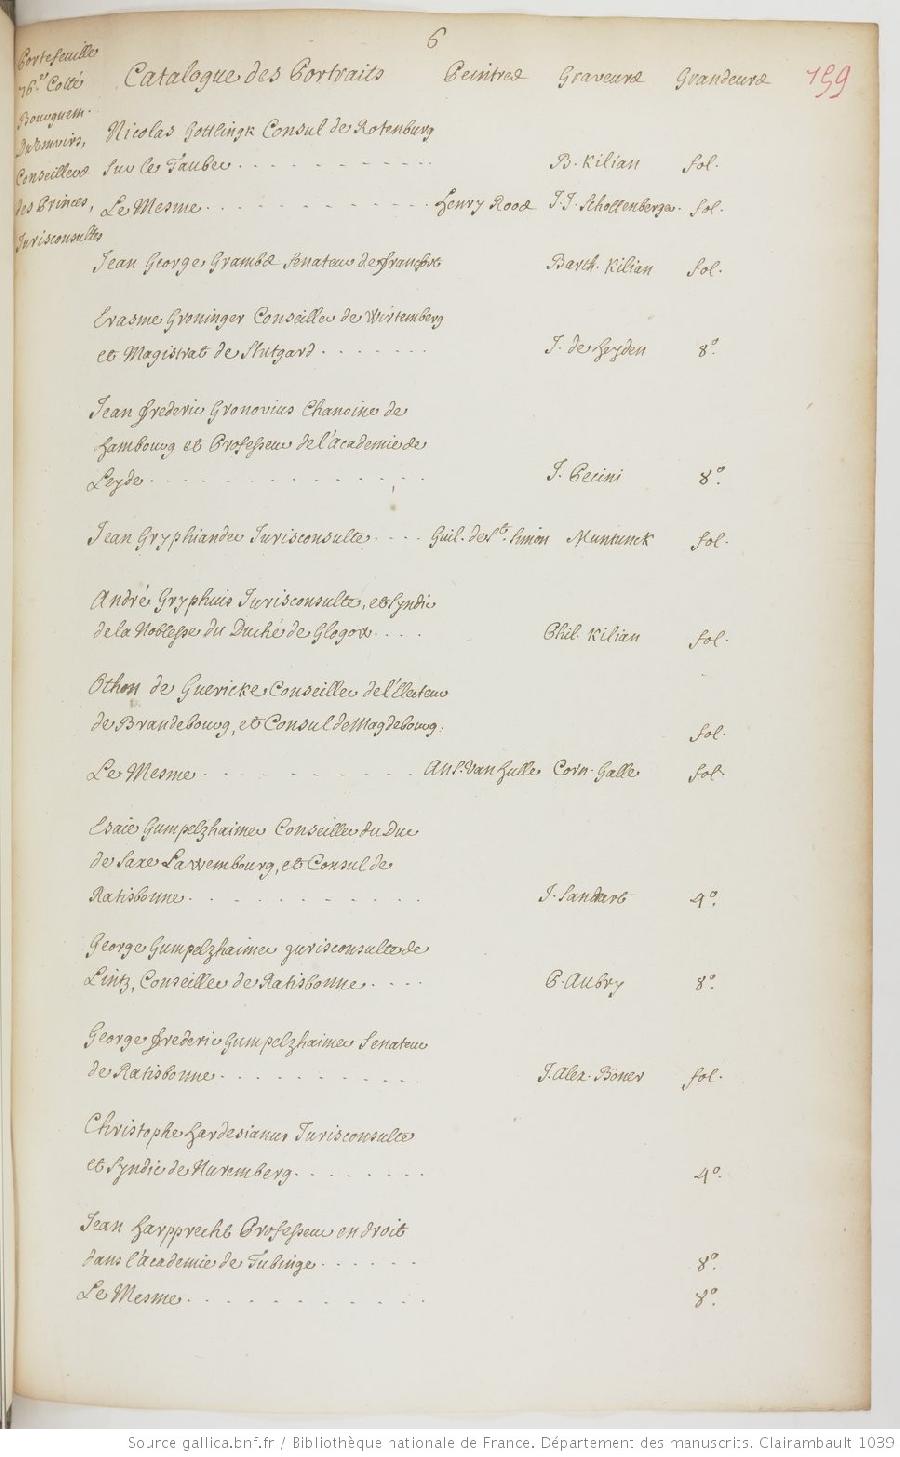 6
Portefeuille
76.e Cotté
Bourguem.
Duumvirs,
Conseillers
des Princes,
Jurisconsultes
Catalogue des Portraits Peintres Graveurs Grandeurs 159
Nicolas Gottlingk Consul de Rotenburg
sur le Tauber . . . . . . . . . . . B. Kilian fol.
Le Mesme . . . . . . . . . . . . Henry Roos J. J. Schollenberger. fol.
Jean George Grambs Senateur de Francfort Barth. Kilian fol.
Erasme Groninger Conseiller de Wirtemberg
et Magistrat de Stutgard . . . . . . . J. de Heyden 8.o
Jean Frederic Gronovius Chanoine de
Hambourg et Professeur de l'academie de
Leyde . . . . . . . . . . . . . . J. Pecini 8.o
Jean Gryphiander Jurisconsulte . . . . Guil. de St. Simon Muntinck fol.
André Gryphius Jurisconsulte, et Syndic
de la Noblesse du Duché de Glogow . . . . Phil. Kilian fol.
Othon de Guericke Conseiller de l'Electeur
de Brandebourg, et Consul de Magdebourg. fol.
Le Mesme . . . . . . . . . . . Ans. Van Hulle Corn. Galle fol.
Esaïe Gumpelzhaimer Conseiller du Duc
de Saxe Lawembourg, et Consul de
Ratisbonne . . . . . . . . . . . . J. Sandart 4.o
George Gumpelzhaimer jurisconsulte de
Lintz, Conseiller de Ratisbonne . . . . P. Aubry 8.o
George Frederic Gumpelzhaimer Senateur
de Ratisbonne . . . . . . . . . . J. Alex. Boner fol.
Christophe Hardesianus Jurisconsulte
et Syndic de Nuremberg . . . . . . . 4.o
Jean Harpprecht Professeur en droit
dans l'Academie de Tubinge . . . . . . 8.o
Le Mesme . . . . . . . . . . . . 8.o
Source gallica.bnf.fr / Bibliothèque nationale de France. Département des manuscrits. Clairambault 1039